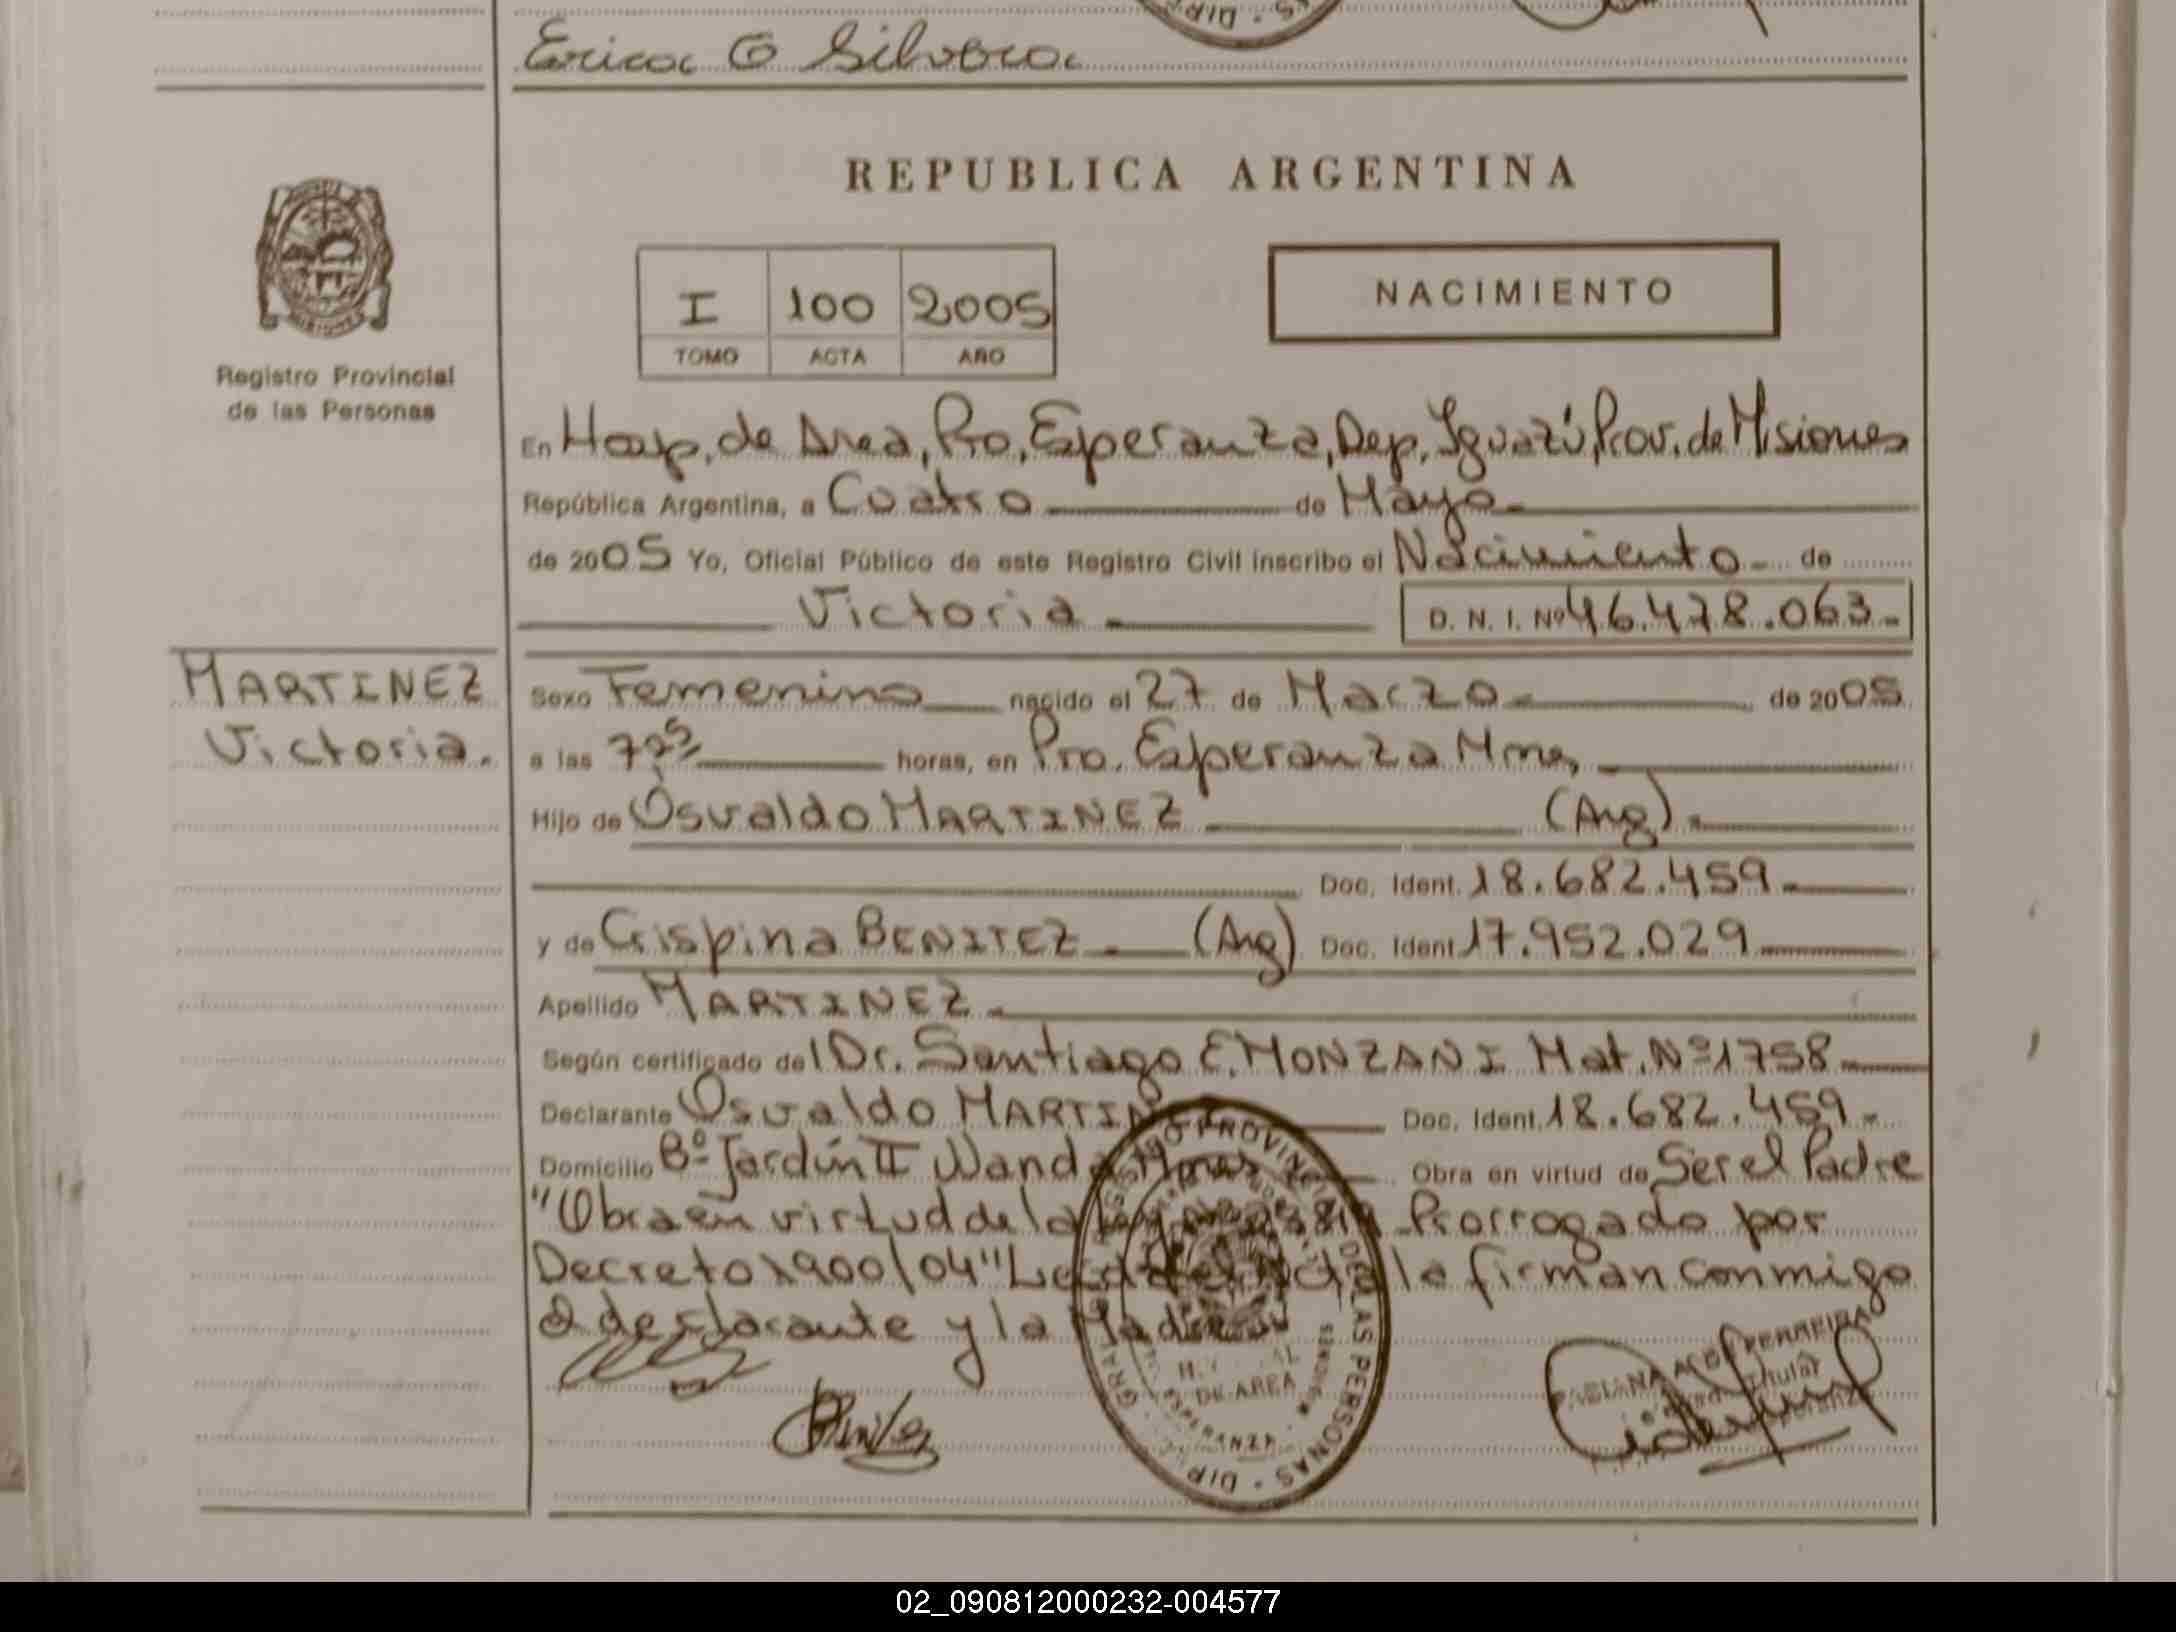 Erica G Silvera
REPUBLICA ARGENTINA
I 100 2005
TOMO ACTA AÑO
NACIMIENTO
MISIONES
Registro Provincial
de las Personas
En Hosp. de Area, Pto. Esperanza, Dep. Iguazú, Prov. de Misiones
República Argentina, a Cuatro de Mayo
de 2005 Yo, Oficial Público de este Registro Civil inscribo el Nacimiento de
Victoria D. N. I. Nº 46.478.063.-
MARTINEZ
Victoria.
Sexo Femenino nacido el 27 de Marzo de 2005
a las 7 horas, en Pto. Esperanza Mnes,
Hijo de Osvaldo MARTINEZ (Arg).
Doc. Ident. 18.682.459
y de Crispina BENITEZ (Arg) Doc. Ident. 17.952.029
Apellido MARTINEZ
Según certificado del Dr. Santiago E. MONZANI Mat. Nº 1758
Declarante Osvaldo MARTIN Doc. Ident. 18.682.459.-
Domicilio Bº Jardín II Wanda Mnes Obra en virtud de Ser el Padre
"Obra en virtud de la Ley Prorrogado por
Decreto 1900/04" Leida el Acta la firman conmigo
el declarante y la Madre
REGISTRO PROVINCIAL DE LAS PERSONAS · DIP. GRAL.
DE AREA
ESPERANZA
FERREIRA
Titular
02_090812000232-004577